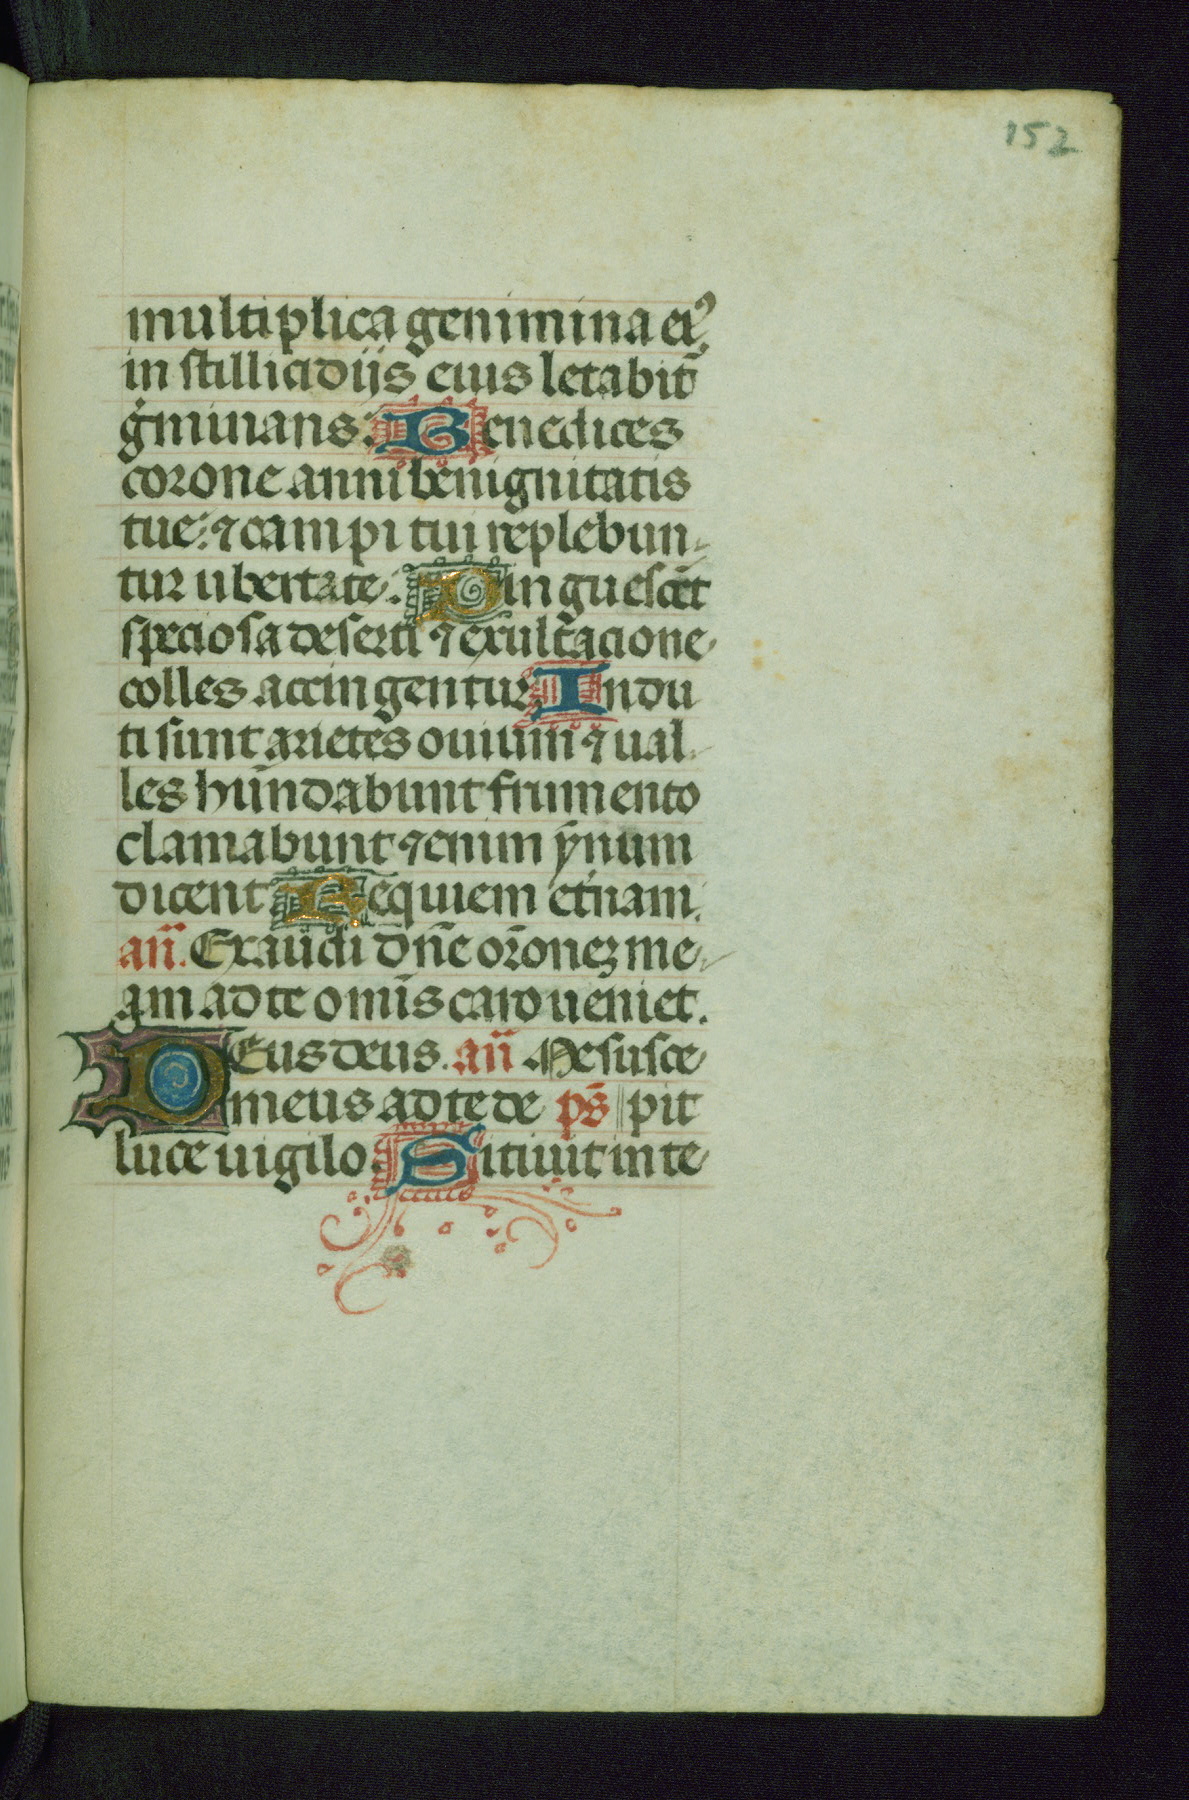 152
multiplica genimina ei⁹
in stillicidijs eius letabit᷑
gͥminans: Benedices
corone anni benignitatis
tue: ⁊ campi tui replebun-
tur ubertate. Pinguescēt
speciosa deserti ⁊ exult᷑acione
colles accingentur. Indu
ti sunt arietes ouium ⁊ ual-
les hūndabunt frumento
clamabunt ⁊enim ẏnum
dicent Requiem et᷑nam.
an̄. Exaudi dn̄e or̄onez me-
am ad te omīs caro ueniet.
DEus deus. an̄ Me susce
meus ad te de ps̄ || pit
luce uigilo. Sitiuit in te